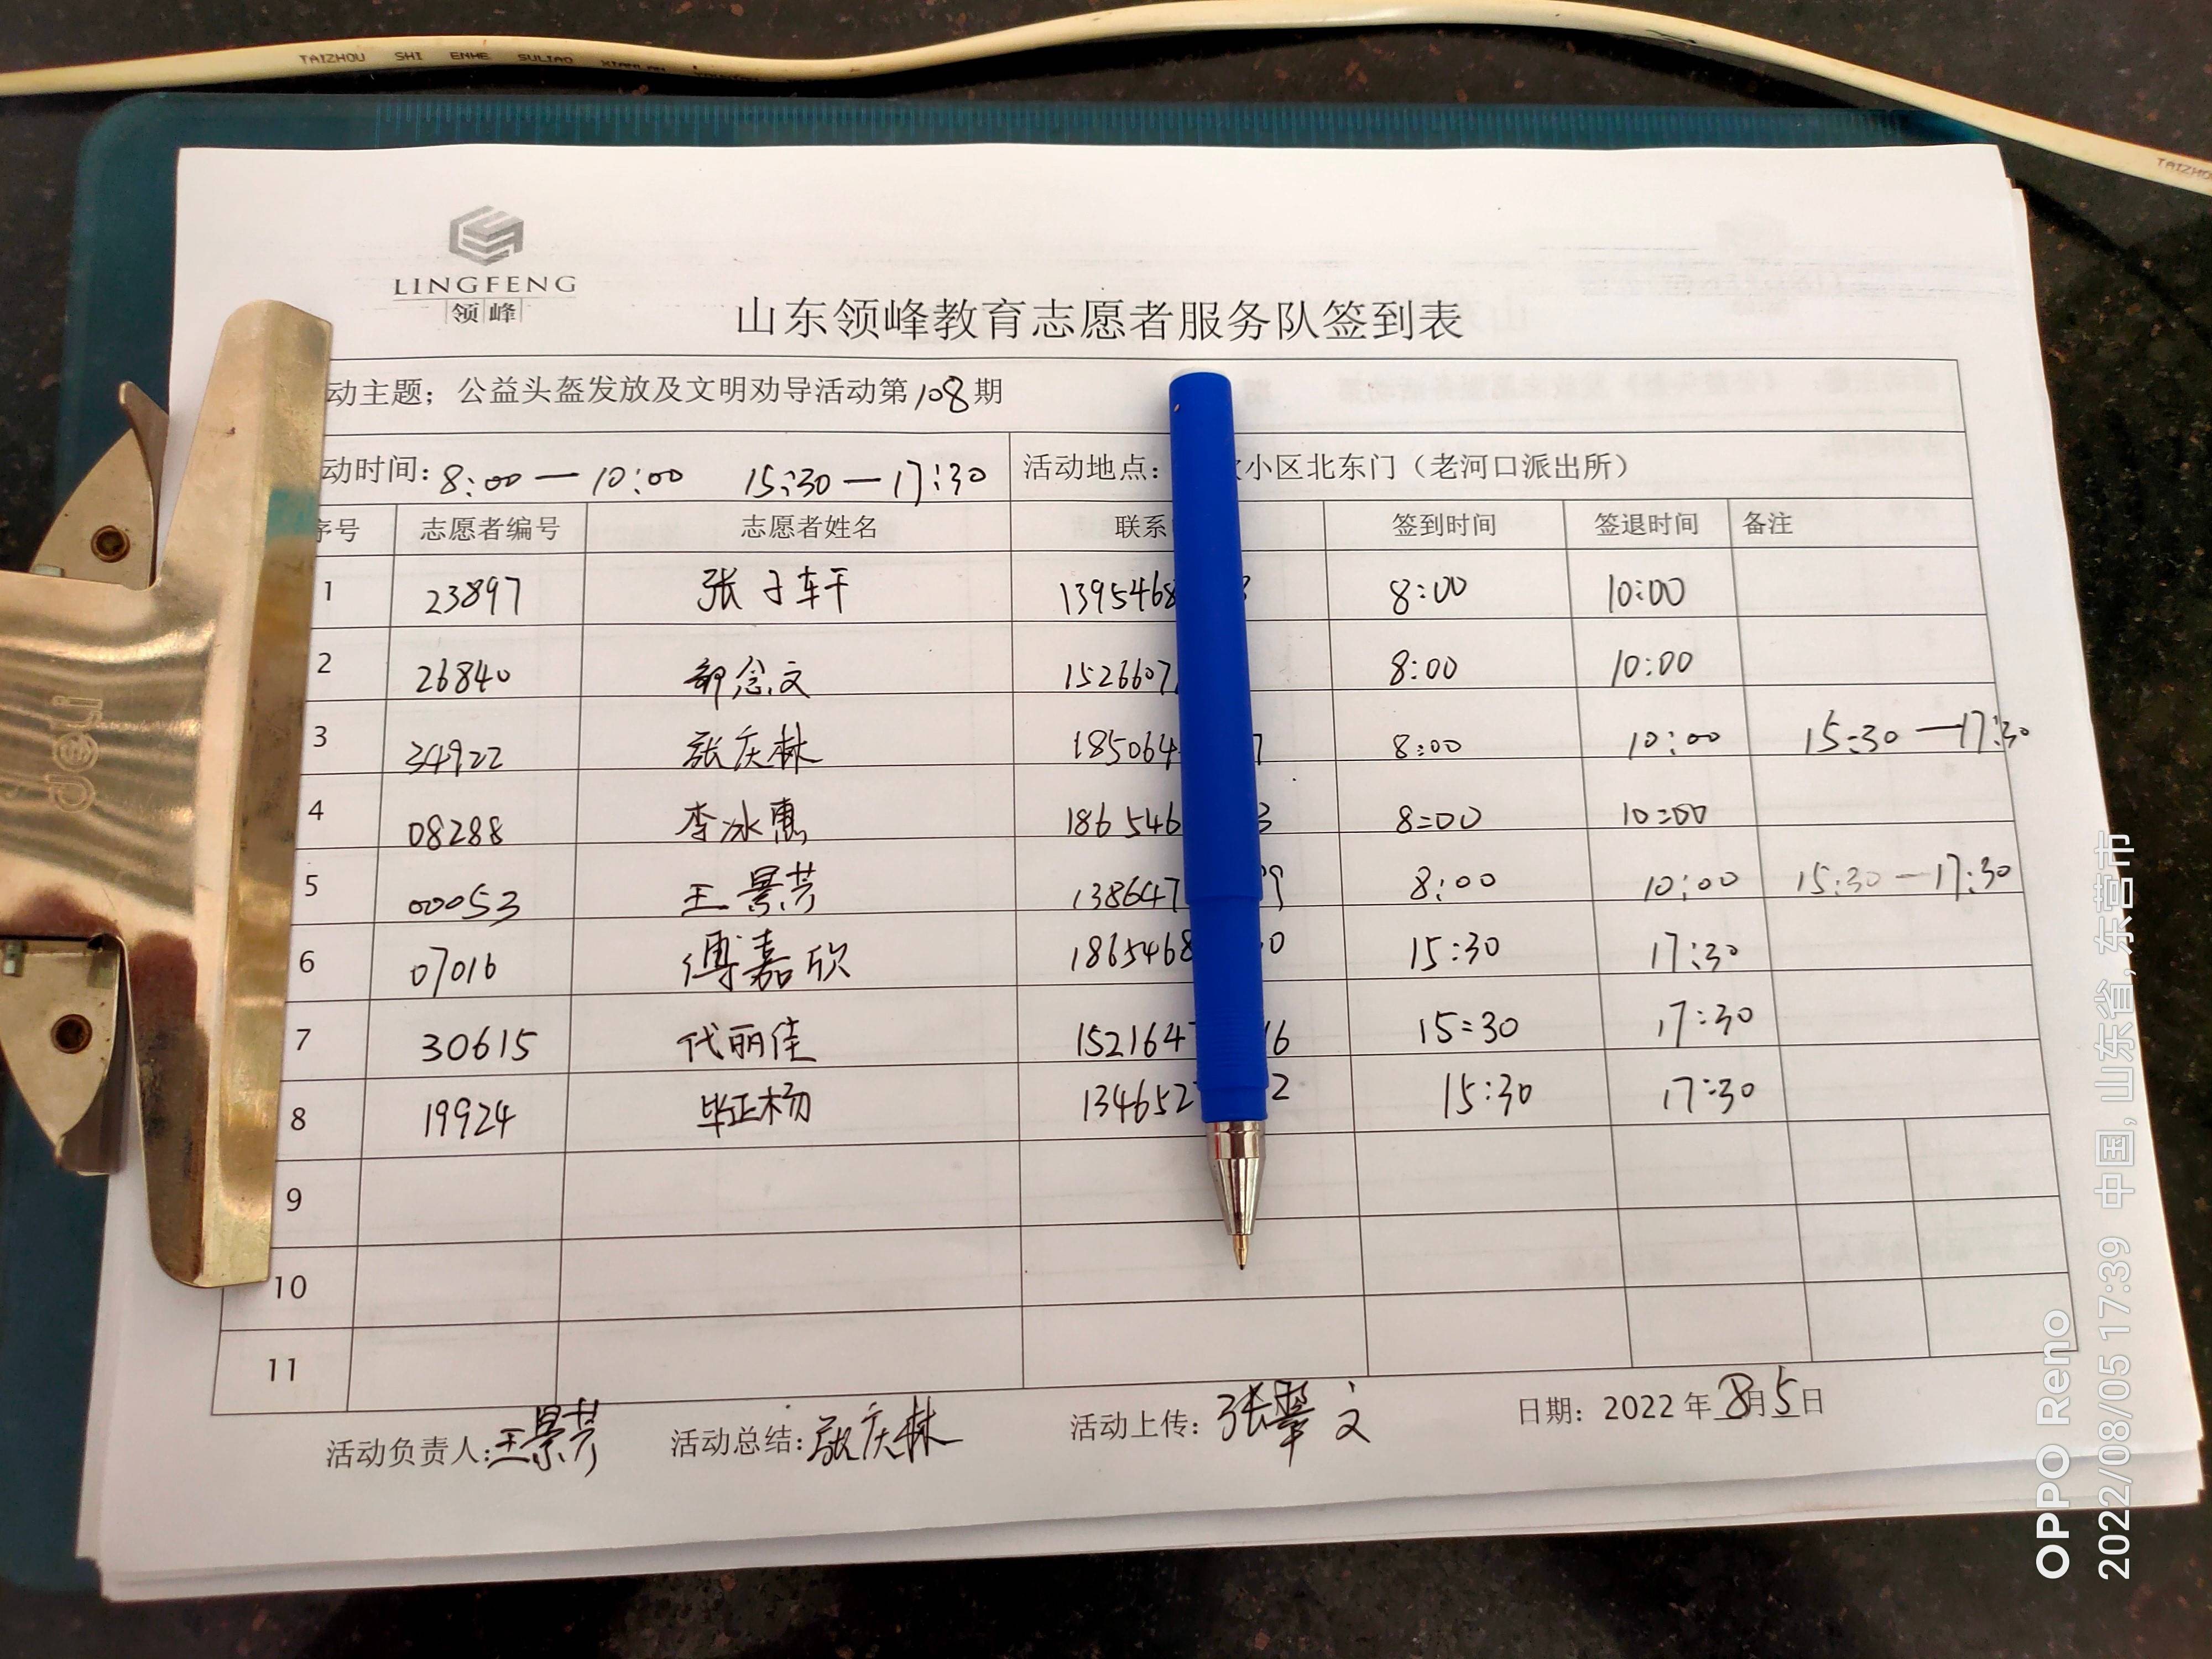 TAIZHOU SHI ENHE SULIAO XIANLAN
TAIZHO
LINGFENG
领峰
山东领峰教育志愿者服务队签到表
动主题；公益头盔发放及文明劝导活动第108期
动时间：8:00—10:00 15:30—17:30 活动地点： 小区北东门（老河口派出所）
序号 志愿者编号 志愿者姓名 联系 签到时间 签退时间 备注
1 23897 张子轩 1395468 8:00 10:00
2 26840 念文 1526607 8:00 10:00
3 34922 张庆林 185064 7 8:00 10:00 15:30—17:30
4 08288 李冰惠 186546 3 8:00 10:00
5 00053 王景芳 138647 9 8:00 10:00 15:30—17:30
6 07016 傅嘉欣 1865468 0 15:30 17:30
7 30615 代丽佳 152164 16 15:30 17:30
8 19924 毕正杨 134652 2 15:30 17:30
9
10
11
活动负责人：王景芳 活动总结：张庆林 活动上传：张 文 日期：2022年8月5日
deli
OPPO Reno
2022/08/05 17:39 中国, 山东省, 东营市